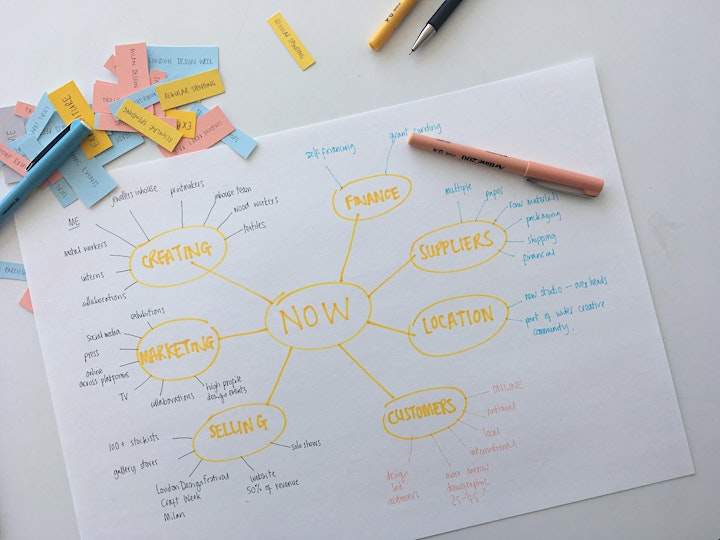 REGULAR SPENDING
MILAN DESIGN
LONDON DESIGN WEEK
REGULAR SPENDING
REGULAR SPENDING
ME
self financing
grant funding
FINANCE
jewellers inhouse
printmakers
inhouse team
wood workers
textiles
ME
metal workers
interns
collaborations
CREATING
multiple
paper
raw materials
packaging
shipping
financial
SUPPLIERS
NOW
new studio – overheads
part of wider creative
community
LOCATION
exhibitions
social media
press
online
across platforms
TV
collaborations
high profile
design events
MARKETING
SELLING
100+ stockists
gallery stores
London Design Festival
Craft Week
Milan
website
50% of revenue
solo shows
CUSTOMERS
ONLINE
national
local
international
more narrow
demographic
25-45?
design
led